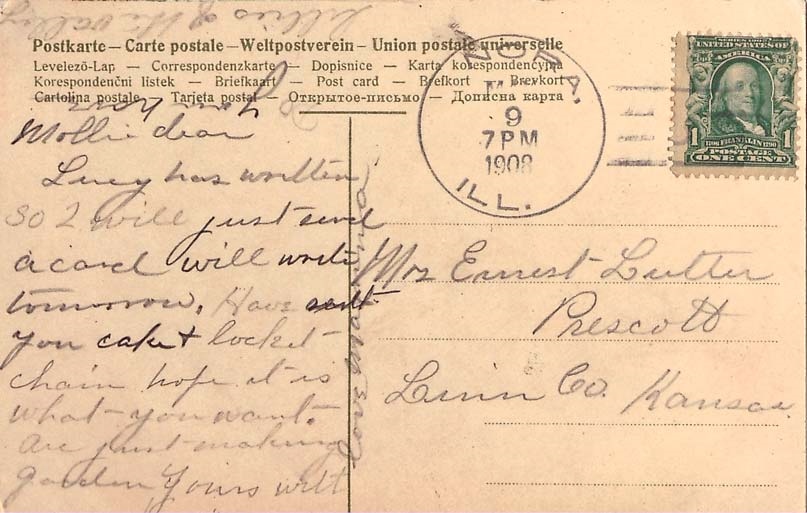 Lillies of the valley
Postkarte — Carte postale — Weltpostverein — Union postale universelle
Levelező-Lap — Correspondenzkarte — Dopisnice — Karta korespondencyjna
Korespondenční lístek — Briefkaart — Post card — Brefkort — Brevkort
Cartolina postale — Tarjeta postal — Открытое-письмо — Дописна карта
Mollie dear
Lucy has written
so I will just send
a card will write
tomorrow. Have sent
you cake + locket
chain hope it is
what you want.
Are just making
garden Yours will
Love Mamma
NORA.
9
7 PM
1908
ILL.
SERIES 1902
UNITED STATES OF AMERICA
1 1706 FRANKLIN 1790 1
POSTAGE
ONE CENT
Mrs Ernest Lutter
Prescott
Linn Co. Kansas